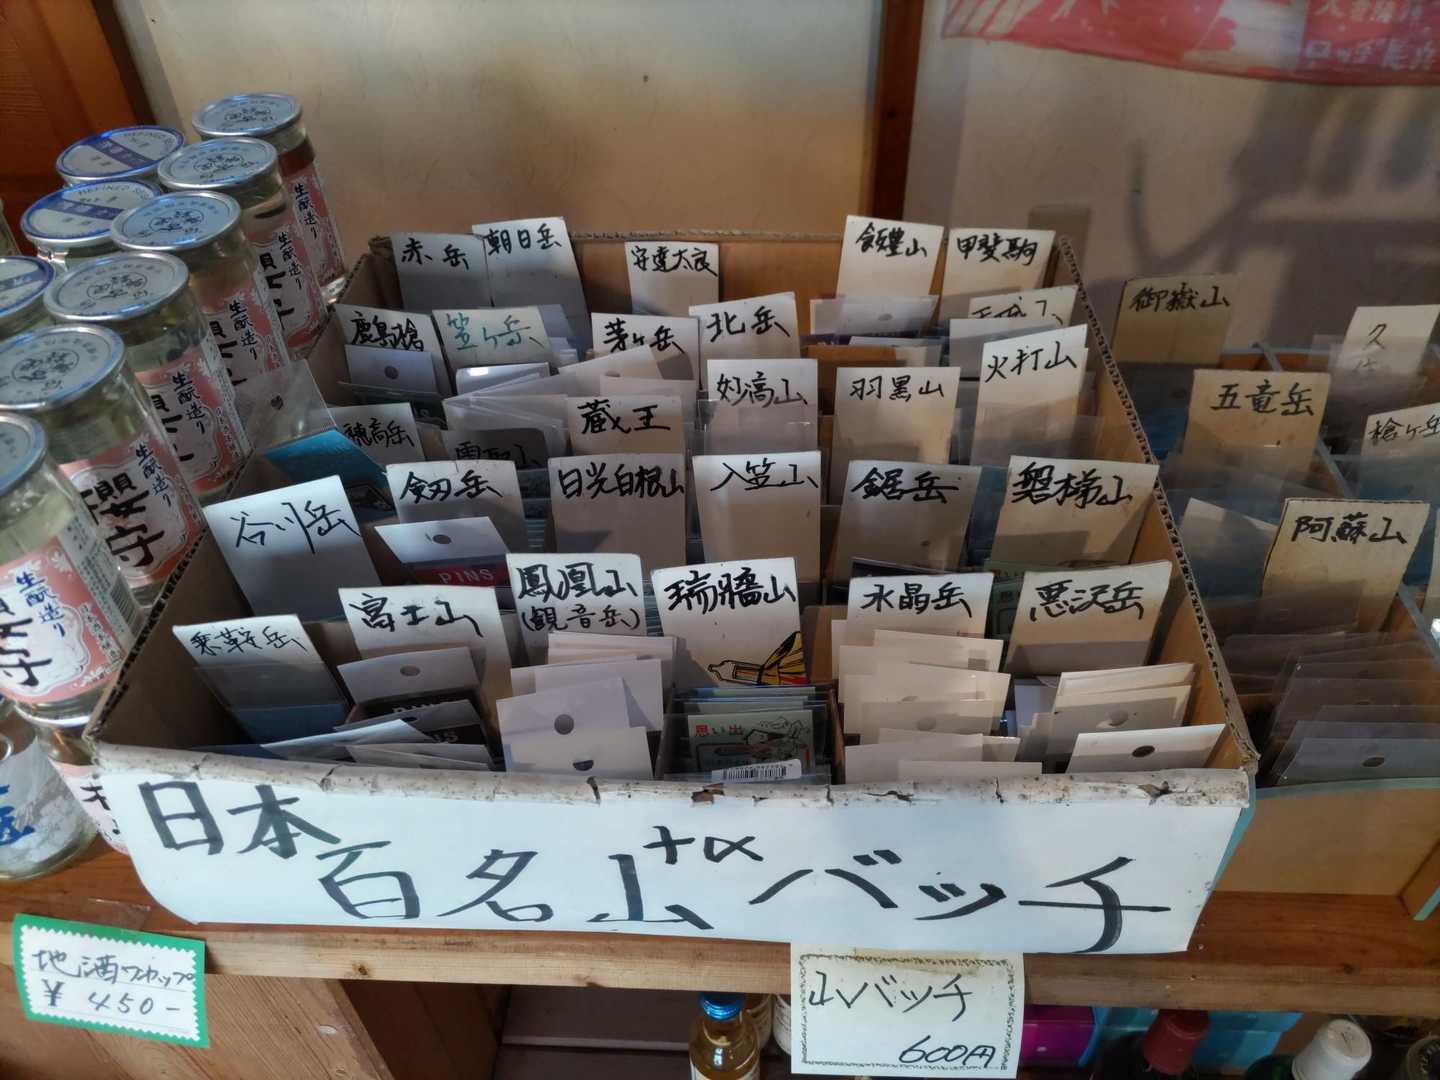 赤岳
朝日岳
安達太良
飯豊山
甲斐駒
御嶽山
鹿島槍
笠ヶ岳
茅ヶ岳
北岳
火打山
妙高山
羽黒山
五竜岳
槍ヶ岳
穂高岳
雲取山
蔵王
谷川岳
劔岳
日光白根山
入笠山
鋸岳
磐梯山
阿蘇山
PINS
乗鞍岳
富士山
鳳凰山
(観音岳)
瑞牆山
水晶岳
悪沢岳
思い出
日本百名山+αバッチ
地酒ワンカップ
¥450-
山バッチ
600円
生酛造り
櫻守